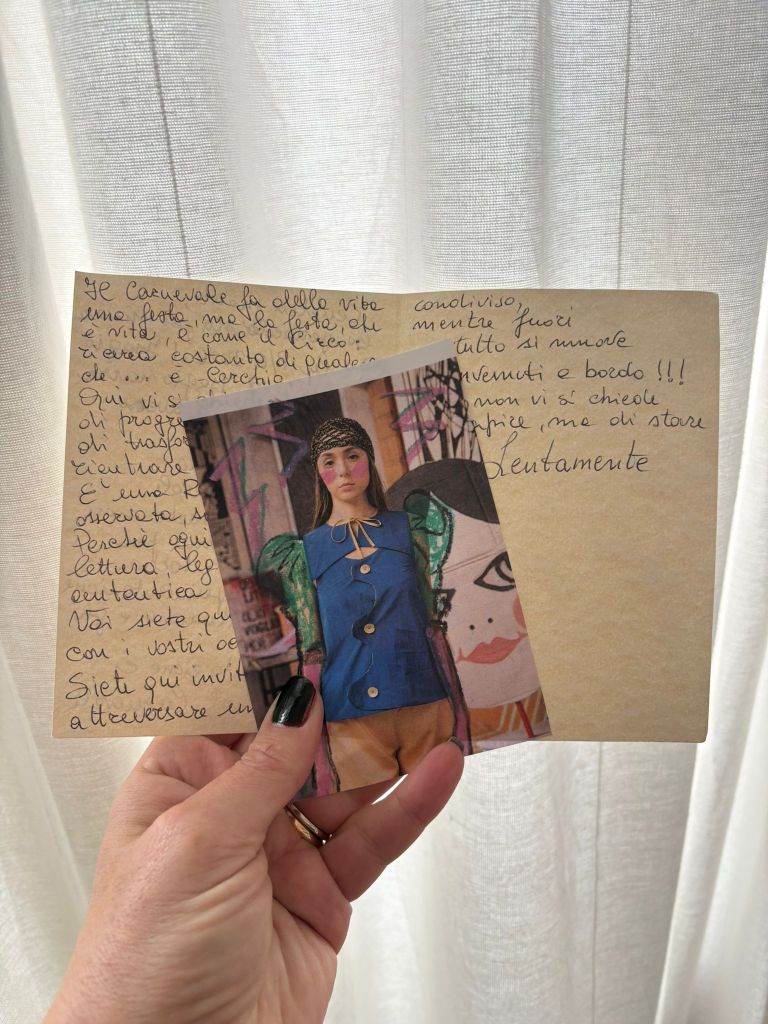 Il Carnevale fa della vita
una festa, ma la festa, che
è vita, è come il Circo:
ricerca costante di qualco
che ... è Cerchio
Qui vi si
di progre
di trasfor
rientrare
E' una R
osservata, s
Perchè ogni
lettura, leg
autentica
Voi siete qu
con i vostri oc
Siete qui invit
attraversare un
condiviso,
mentre fuori
tutto si muove
nvenuti a bordo !!!
non vi si chiede
apire, ma di stare
Lentamente